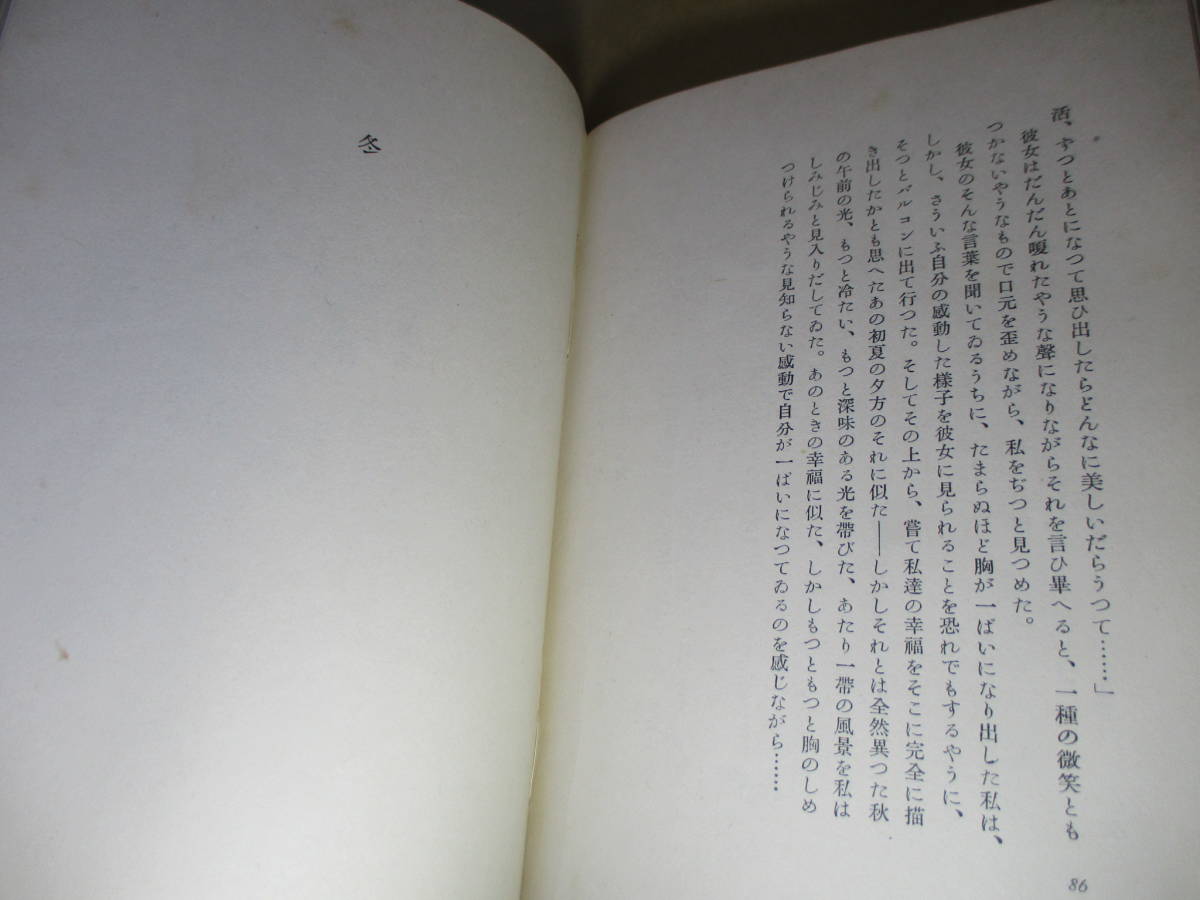 活、ずつとあとになつて思ひ出したらどんなに美しいだらうつて……」
彼女はだんだん嗄れたやうな聲になりながらそれを言ひ畢へると、一種の微笑とも
つかないやうなもので口元を歪めながら、私をぢつと見つめた。
彼女のそんな言葉を聞いてゐるうちに、たまらぬほど胸が一ぱいになり出した私は、
しかし、さういふ自分の感動した様子を彼女に見られることを恐れでもするやうに、
そつとバルコンに出て行つた。そしてその上から、嘗て私達の幸福をそこに完全に描
き出したかとも思へたあの初夏の夕方のそれに似た――しかしそれとは全然異つた秋
の午前の光、もつと冷たい、もつと深味のある光を帶びた、あたり一帶の風景を私は
しみじみと見入りだしてゐた。あのときの幸福に似た、しかしもつともつと胸のしめ
つけられるやうな見知らない感動で自分が一ぱいになつてゐるのを感じながら……
86
冬